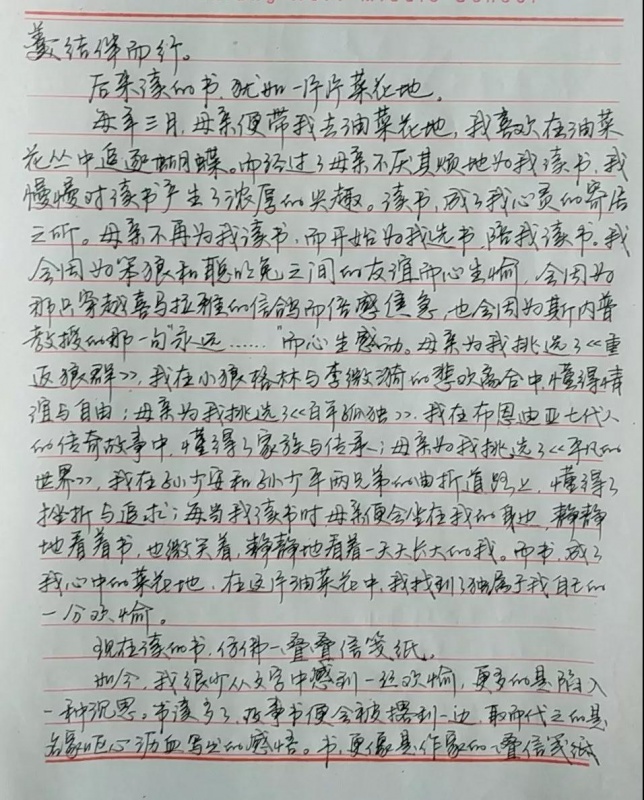 美结伴而行。
后来读的书，犹如一片片菜花地。
每年三月，母亲便带我去油菜花地，我喜欢在油菜
花丛中追逐蝴蝶。而经过了母亲不厌其烦地为我读书，我
慢慢对读书产生了浓厚的兴趣。读书，成了我心灵的寄居
之所。母亲不再为我读书，而开始为我选书，陪我读书。我
会因为笨狼和聪明兔之间的友谊而心生愉，会因为
那只穿越喜马拉雅的信鸽而倍感焦急，也会因为斯内普
教授的那一句“永远……”而心生感动。母亲为我挑选了《重
返狼群》，我在小狼格林与李微漪的悲欢离合中，懂得情
谊与自由；母亲为我挑选了《百年孤独》，我在布恩迪亚七代人
的传奇故事中，懂得了家族与传承；母亲为我挑选了《平凡的
世界》，我在孙少安和孙少平两兄弟的曲折道路上，懂得了
挫折与追求；每当我读书时母亲便会坐在我的身边，静静
地看着书，也微笑着，静静地看着一天天长大的我。而书，成了
我心中的菜花地，在这片油菜花中，我找到了独属于我自己的
一分欢愉。
现在读的书，仿佛一叠叠信笺纸。
如今，我很少从文字中感到一丝欢愉，更多的是陷入
一种沉思。书读多了，故事书便会被撂到一边，取而代之的是
名家呕心沥血写出的感悟。书，更像是作家的一叠信笺纸